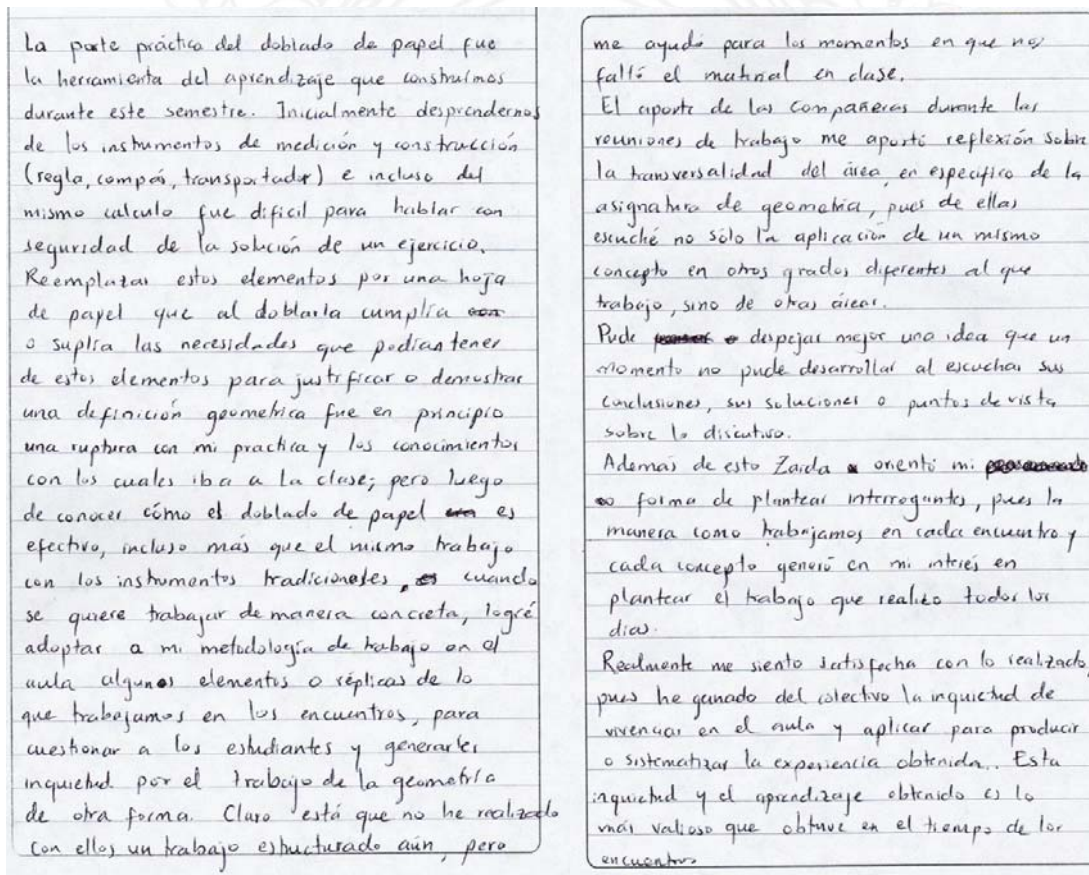 La parte práctica del doblado de papel fue
la herramienta del aprendizaje que construimos
durante este semestre. Inicialmente desprendernos
de los instrumentos de medición y construcción
(regla, compás, transportador) e incluso del
mismo calculo fue dificil para hablar con
seguridad de la solución de un ejercicio.
Reemplazar estos elementos por una hoja
de papel que al doblarla cumplía
o suplía las necesidades que podian tener
de estos elementos para justificar o demostrar
una definición geometrica fue en principio
una ruptura con mi practica y los conocimientos
con los cuales iba a la clase; pero luego
de conocer cómo el doblado de papel es
efectivo, incluso más que el mismo trabajo
con los instrumentos tradicionales, cuando
se quiere trabajar de manera concreta, logré
adoptar a mi metodología de trabajo en el
aula algunos elementos o réplicas de lo
que trabajamos en los encuentros, para
cuestionar a los estudiantes y generarles
inquietud por el trabajo de la geometría
de otra forma. Claro está que no he realizado
con ellos un trabajo estructurado aún, pero
me ayudó para los momentos en que nos
falló el material en clase.
El aporte de las compañeras durante las
reuniones de trabajo me aportó reflexión sobre
la transversalidad del área, en especifico de la
asignatura de geometria, pues de ellas
escuché no sólo la aplicación de un mismo
concepto en otros grados diferentes al que
trabajo, sino de otras áreas.
Pude despejar mejor una idea que un
momento no pude desarrollar al escuchar sus
conclusiones, sus soluciones o puntos de vista
sobre lo discutido.
Además de esto Zaida orientó mi
forma de plantear interrogantes, pues la
manera como trabajamos en cada encuentro y
cada concepto generó en mi interés en
plantear el trabajo que realizo todos los
dias.
Realmente me siento satisfecha con lo realizado,
pues he ganado del colectivo la inquietud de
vivenciar en el aula y aplicar para producir
o sistematizar la experiencia obtenida. Esta
inquietud y el aprendizaje obtenido es lo
más valioso que obtuve en el tiempo de los
encuentros